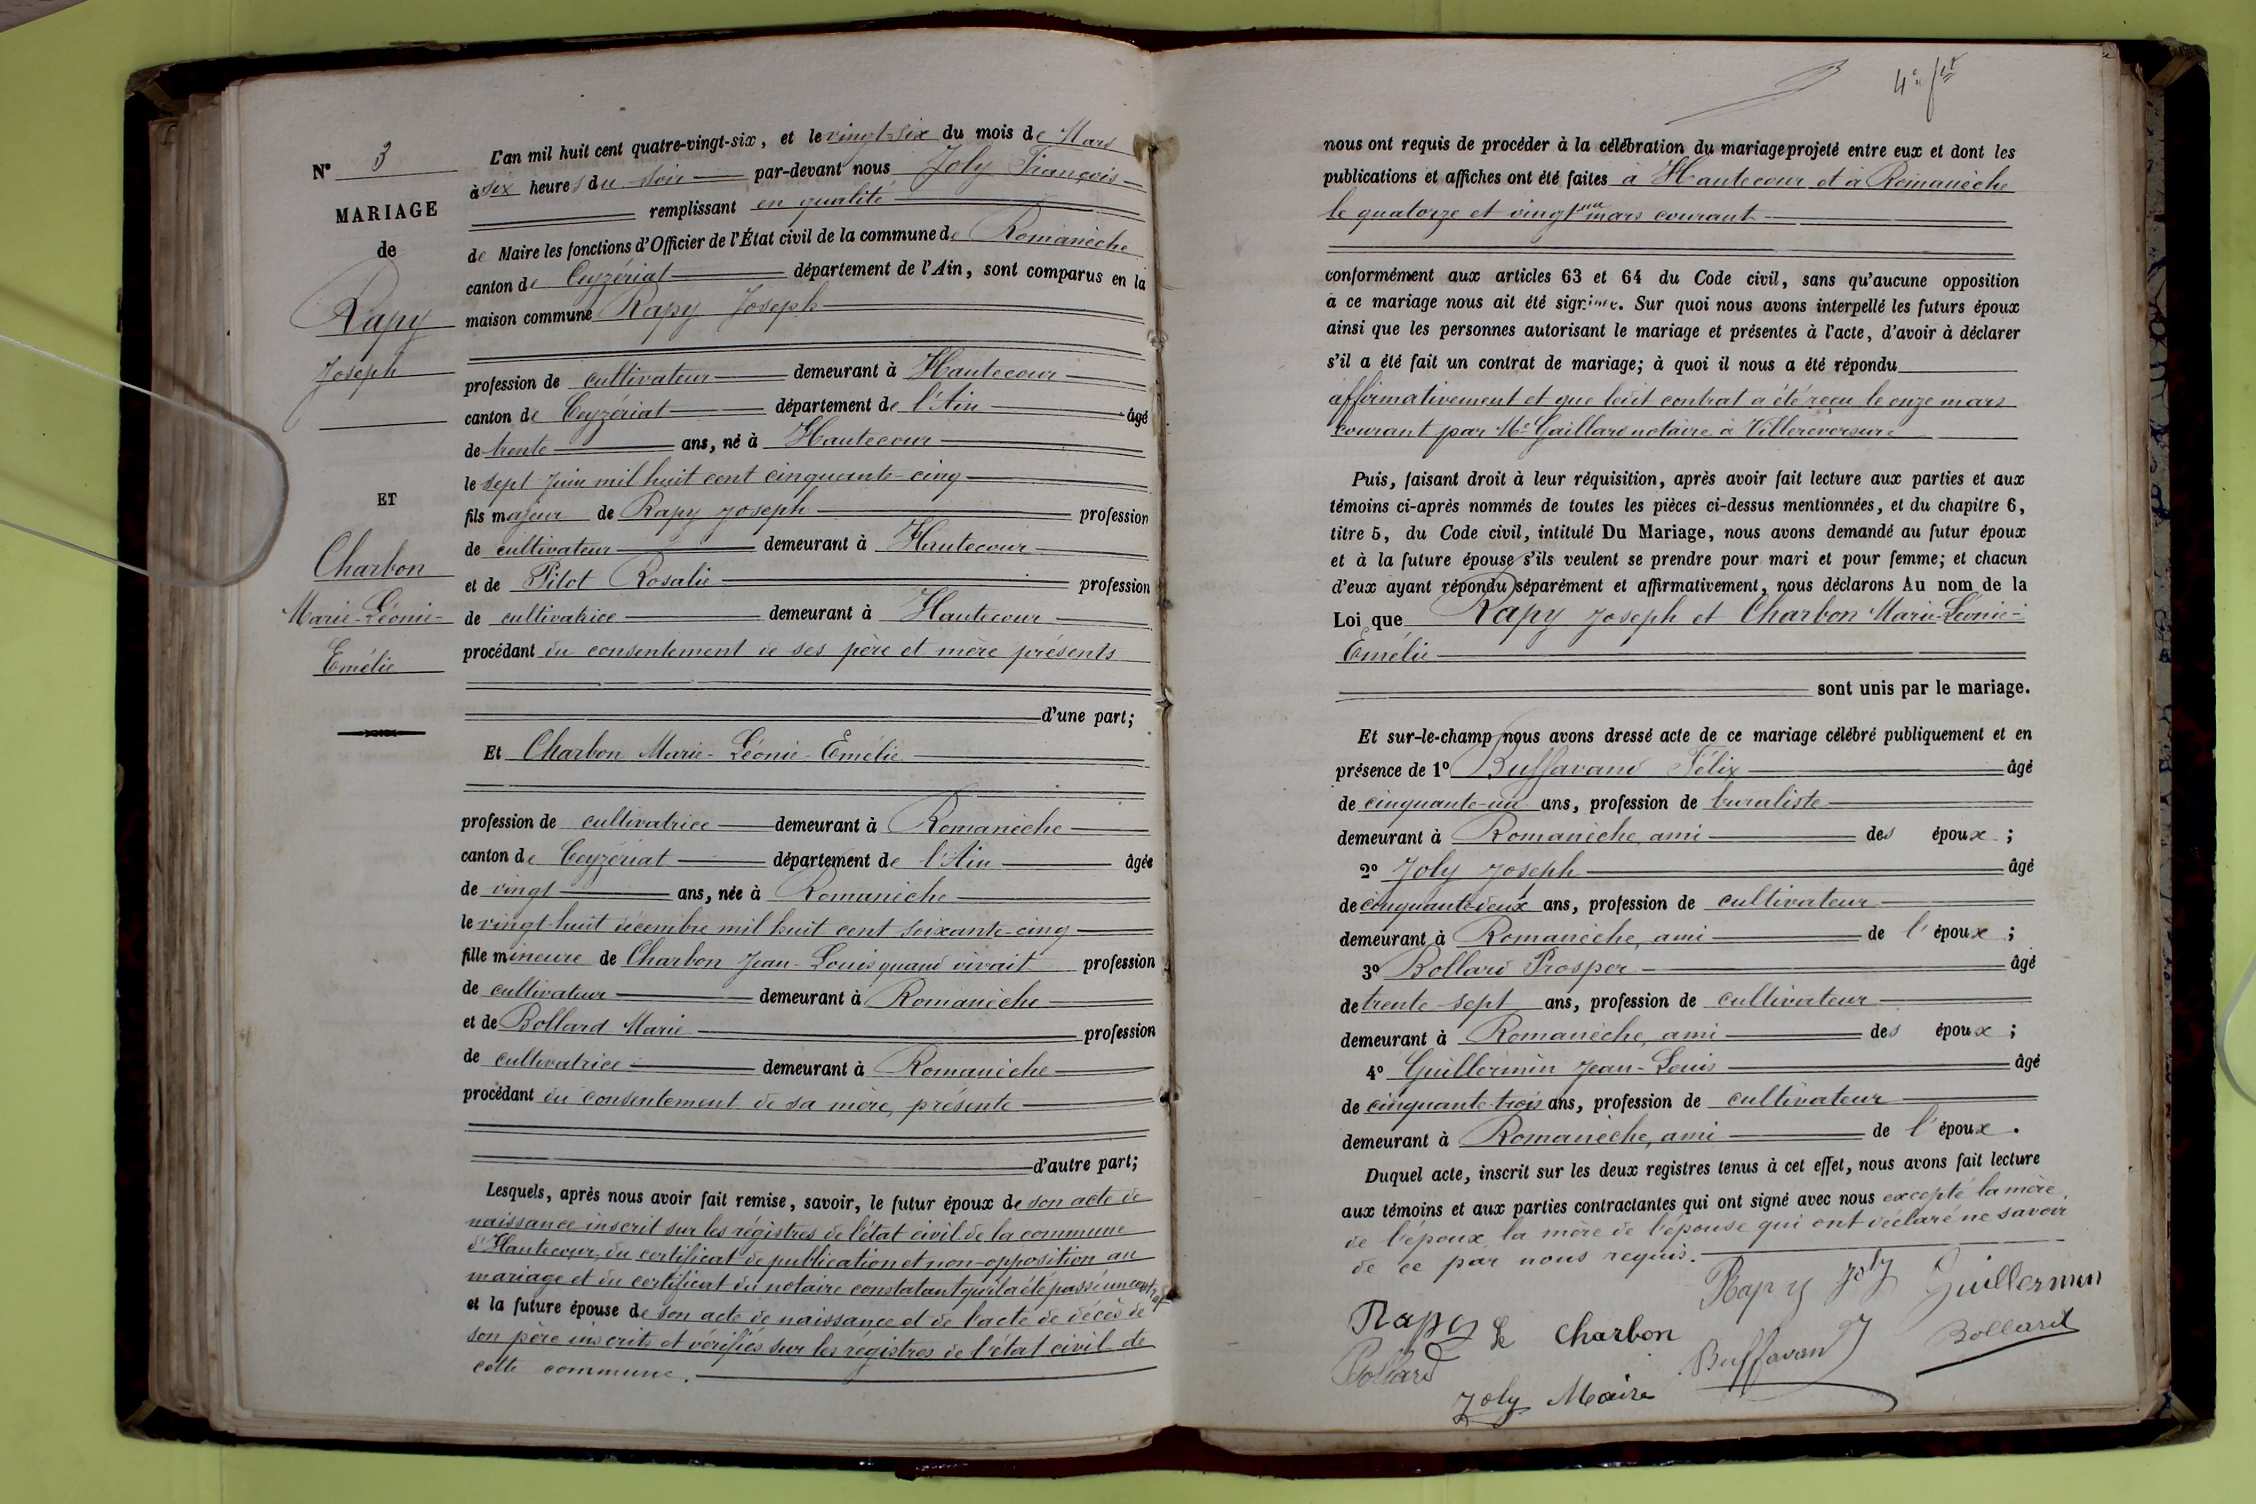 N° 3
MARIAGE
de
Rapy
Joseph
ET
Charbon
Marie-Léonie-
Emélie
L'an mil huit cent quatre-vingt-six, et le vingt-six du mois de Mars
à six heures du soir par-devant nous Joly François
remplissant en qualité
de Maire les fonctions d'Officier de l'État civil de la commune de Romanèche
canton de Ceyzériat département de l'Ain, sont comparus en la
maison commune Rapy Joseph
profession de cultivateur demeurant à Hautecour
canton de Ceyzériat département de l'Ain âgé
de trente ans, né à Hautecour
le sept juin mil huit cent cinquante-cinq
fils majeur de Rapy Joseph profession
de cultivateur demeurant à Hautecour
et de Pitot Rosalie profession
de cultivatrice demeurant à Hautecour
procédant du consentement de ses père et mère présents
d'une part;
Et Charbon Marie-Léonie-Emélie
profession de cultivatrice demeurant à Romanèche
canton de Ceyzériat département de l'Ain âgée
de vingt ans, née à Romanèche
le vingt-huit décembre mil huit cent soixante-cinq
fille mineure de Charbon Jean-Louis quand vivait profession
de cultivateur demeurant à Romanèche
et de Bollard Marie profession
de cultivatrice demeurant à Romanèche
procédant du consentement de sa mère, présente
d'autre part;
Lesquels, après nous avoir fait remise, savoir, le futur époux de son acte de
naissance inscrit sur les régistres de l'état civil de la commune
d'Hautecour, du certificat de publication et non-opposition au
mariage et du certificat du notaire constatant qu'il a été passé un contrat
et la future épouse de son acte de naissance et de l'acte de décès de
son père inscrits et vérifiés sur les régistres de l'état civil de
cette commune.
4e
nous ont requis de procéder à la célébration du mariage projeté entre eux et dont les
publications et affiches ont été faites à Hautecour et à Romanèche
le quatorze et vingt-un mars courant
conformément aux articles 63 et 64 du Code civil, sans qu'aucune opposition
à ce mariage nous ait été signifiée. Sur quoi nous avons interpellé les futurs époux
ainsi que les personnes autorisant le mariage et présentes à l'acte, d'avoir à déclarer
s'il a été fait un contrat de mariage; à quoi il nous a été répondu
affirmativement et que ledit contrat a été reçu le onze mars
courant par Me Gaillard notaire à Villereversure
Puis, faisant droit à leur réquisition, après avoir fait lecture aux parties et aux
témoins ci-après nommés de toutes les pièces ci-dessus mentionnées, et du chapitre 6,
titre 5, du Code civil, intitulé Du Mariage, nous avons demandé au futur époux
et à la future épouse s'ils veulent se prendre pour mari et pour femme; et chacun
d'eux ayant répondu séparément et affirmativement, nous déclarons Au nom de la
Loi que Rapy Joseph et Charbon Marie-Léonie-
Emélie
sont unis par le mariage.
Et sur-le-champ nous avons dressé acte de ce mariage célébré publiquement et en
présence de 1° Buffavand Félix âgé
de cinquante-un ans, profession de buraliste
demeurant à Romanèche, ami des époux ;
2° Joly Joseph âgé
de cinquante-deux ans, profession de cultivateur
demeurant à Romanèche, ami de l'époux ;
3° Bollard Prosper âgé
de trente-sept ans, profession de cultivateur
demeurant à Romanèche, ami des époux ;
4° Guillermin Jean-Louis âgé
de cinquante-trois ans, profession de cultivateur
demeurant à Romanèche, ami de l'époux.
Duquel acte, inscrit sur les deux registres tenus à cet effet, nous avons fait lecture
aux témoins et aux parties contractantes qui ont signé avec nous excepté la mère
de l'époux la mère de l'épouse qui ont déclaré ne savoir
de ce par nous requis.
Rapy Joly Guillermin
Rapy Le Charbon
Bollard Buffavand Bollard
Joly Maire